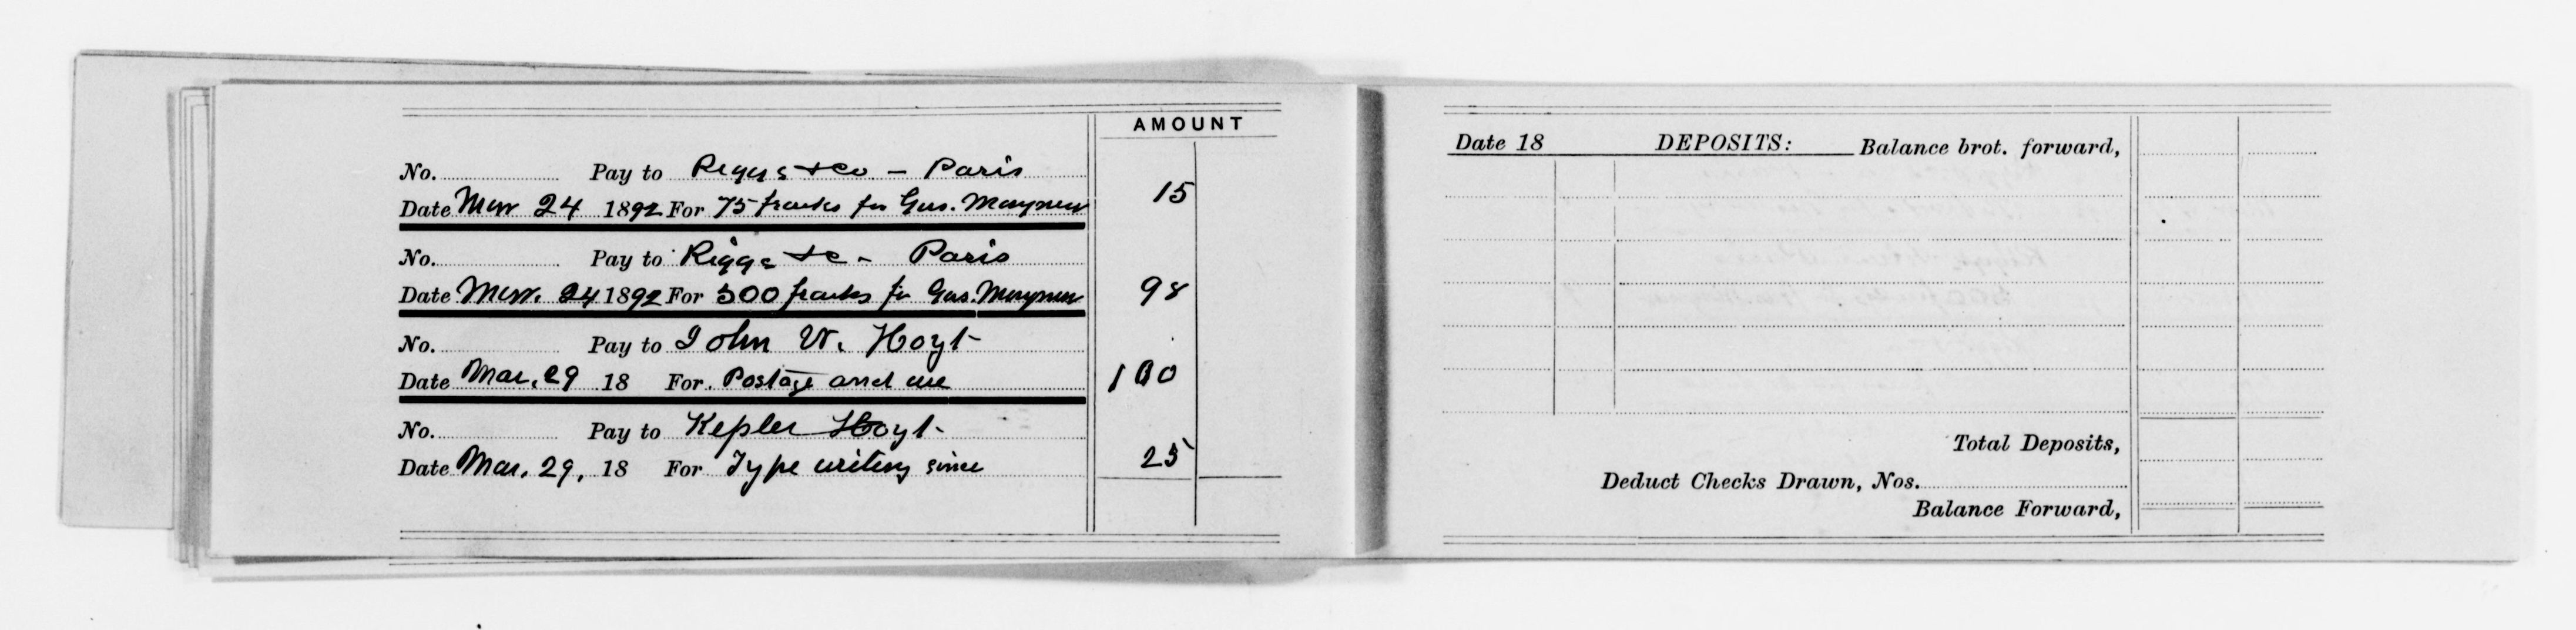 AMOUNT
No. Pay to Riggs & Co – Paris
Date Mar 24 1892 For 75 francs for Gus. 15
No. Pay to Riggs & C – Paris
Date Mar. 24 1892 For 500 francs for Gus. 98
No. Pay to John W. Hoyt
Date Mar. 29 18 For Postage and use 100
No. Pay to Kepler Hoyt
Date Mar. 29, 18 For Type writing since 25
Date 18 DEPOSITS: Balance brot. forward,
Total Deposits,
Deduct Checks Drawn, Nos.
Balance Forward,